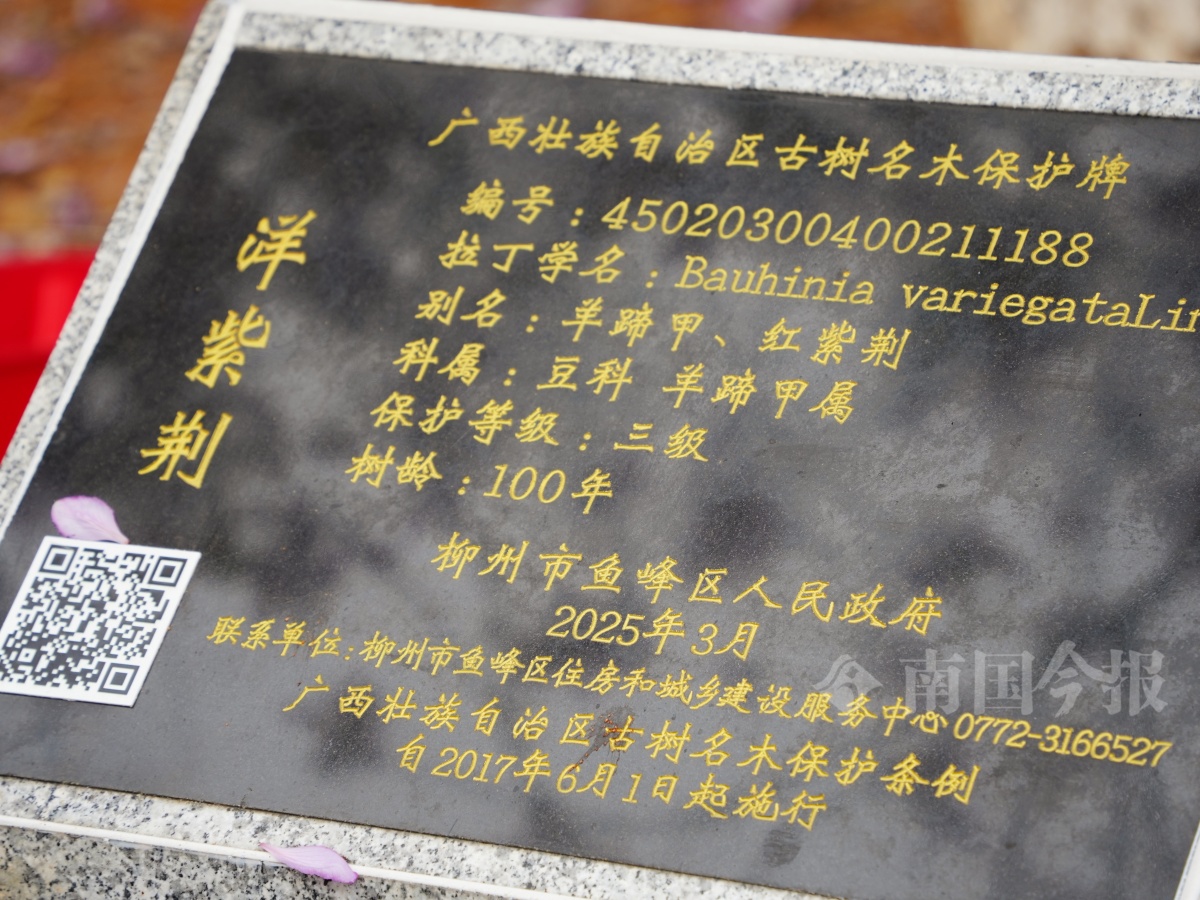 广西壮族自治区古树名木保护牌
洋紫荆
编号：45020300400211188
拉丁学名：Bauhinia variegataLin
别名：羊蹄甲、红紫荆
科属：豆科 羊蹄甲属
保护等级：三级
树龄：100年
柳州市鱼峰区人民政府
2025年3月
联系单位：柳州市鱼峰区住房和城乡建设服务中心 0772-3166527
广西壮族自治区古树名木保护条例
自2017年6月1日起施行
南国今报